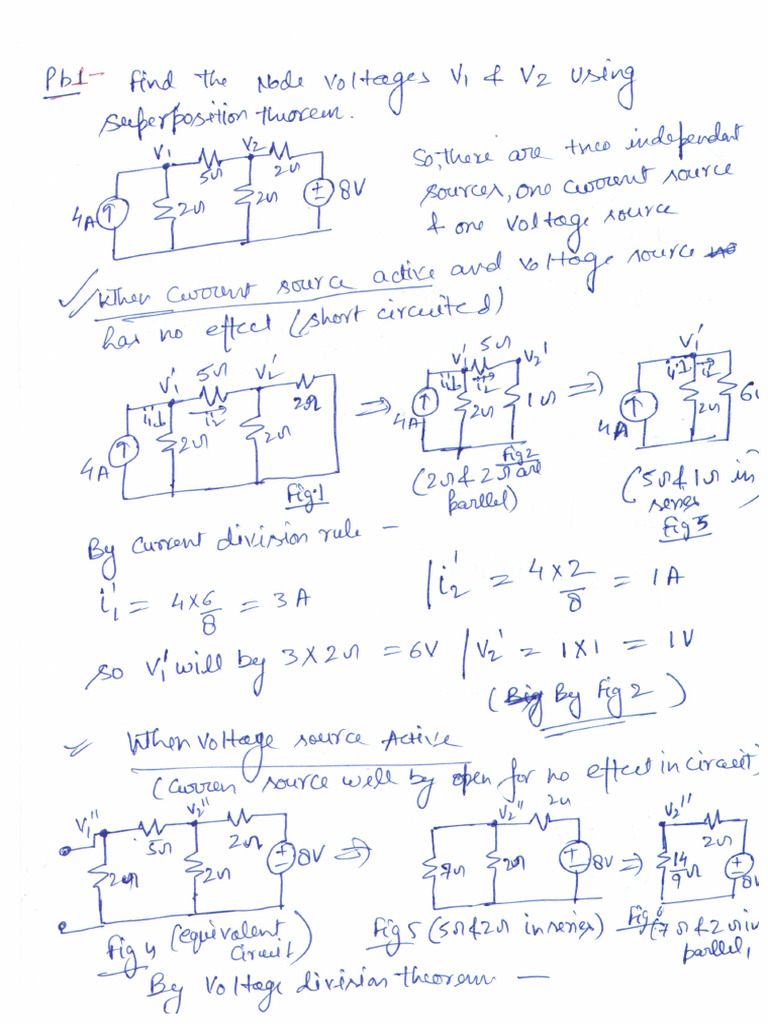 Pb1- Find the Node Voltages V1 & V2 using
superposition theorem.
V1 5Ω V2 2Ω
4A 2Ω 2Ω 8V
So, there are two independent
sources, one current source
& one voltage source
When current source active and voltage source
has no effect (short circuited)
V1' 5Ω V2' 2Ω
i1' i2'
4A 2Ω 2Ω
Fig.1
⇒
V1' 5Ω V2'
i1' i2'
4A 2Ω 1Ω
Fig 2
(2Ω & 2Ω are
parllel)
⇒
V1'
i1' i2'
4A 2Ω 6
(5Ω & 1Ω in
series
Fig 3
By current division rule -
i1' = 4×6/8 = 3A | i2' = 4×2/8 = 1A
so V1' will by 3×2Ω = 6V | V2' = 1×1 = 1V
(By Fig 2)
When voltage source Active
(Curren source will by open for no effect in circuit)
V1'' 5Ω V2'' 2Ω
2Ω 2Ω 8V
Fig 4 (equivalent
circuit)
⇒
V2'' 2Ω
7Ω 2Ω 8V
Fig 5 (5Ω & 2Ω in series)
⇒
V2'' 2Ω
14/9 Ω 8V
Fig 6 (7Ω & 2Ω in
parllel,
By Voltage division theorem -